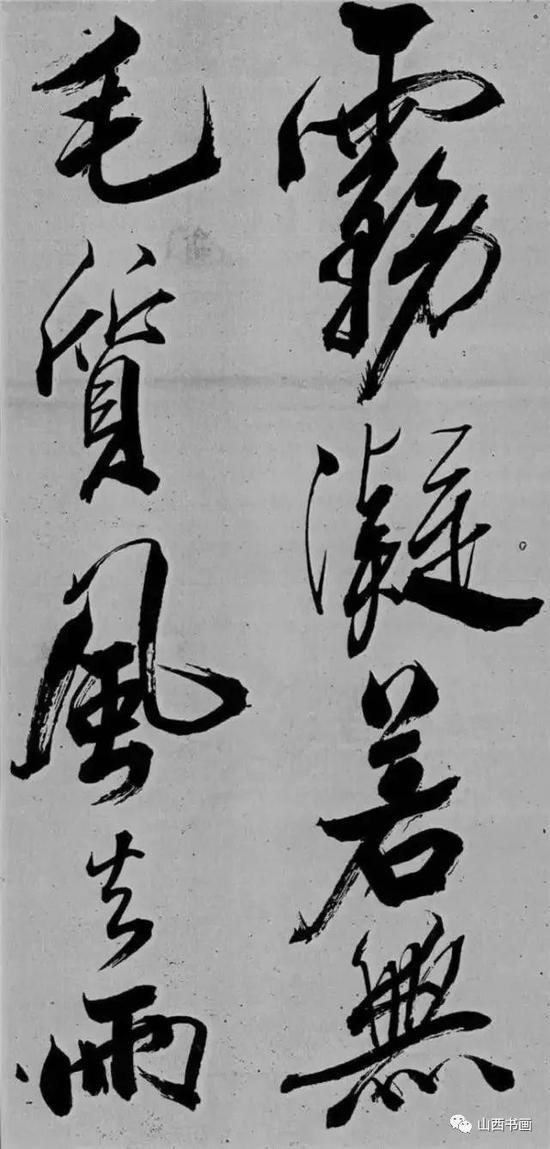 霧凝若無
毛質風去雨
山西书画